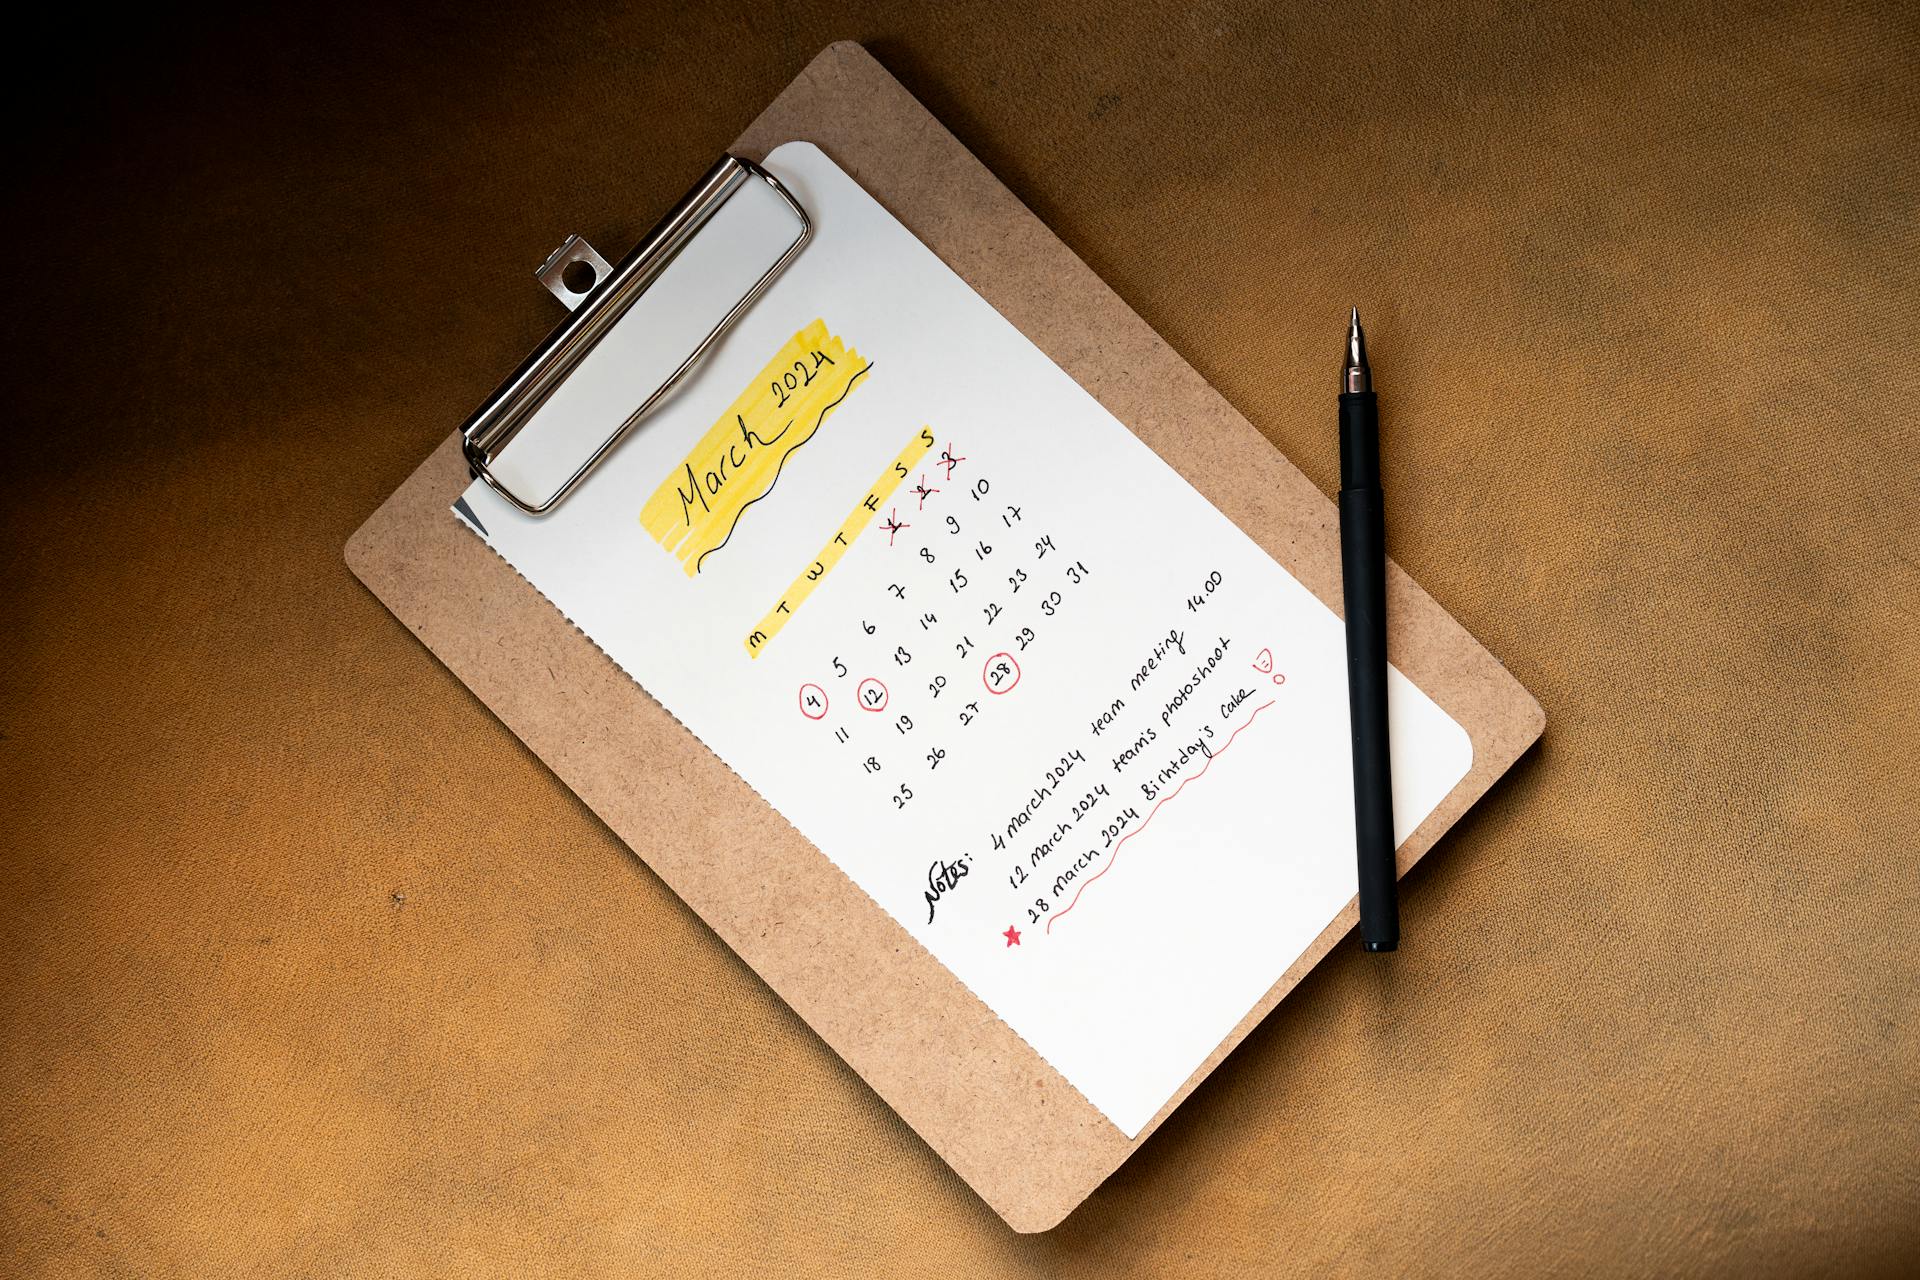 March 2024
M T W T F S S
1 2 3
4 5 6 7 8 9 10
11 12 13 14 15 16 17
18 19 20 21 22 23 24
25 26 27 28 29 30 31
Notes: 4 March 2024 team meeting 14.00
12 March 2024 team's photoshoot
28 March 2024 Birhtday's cake